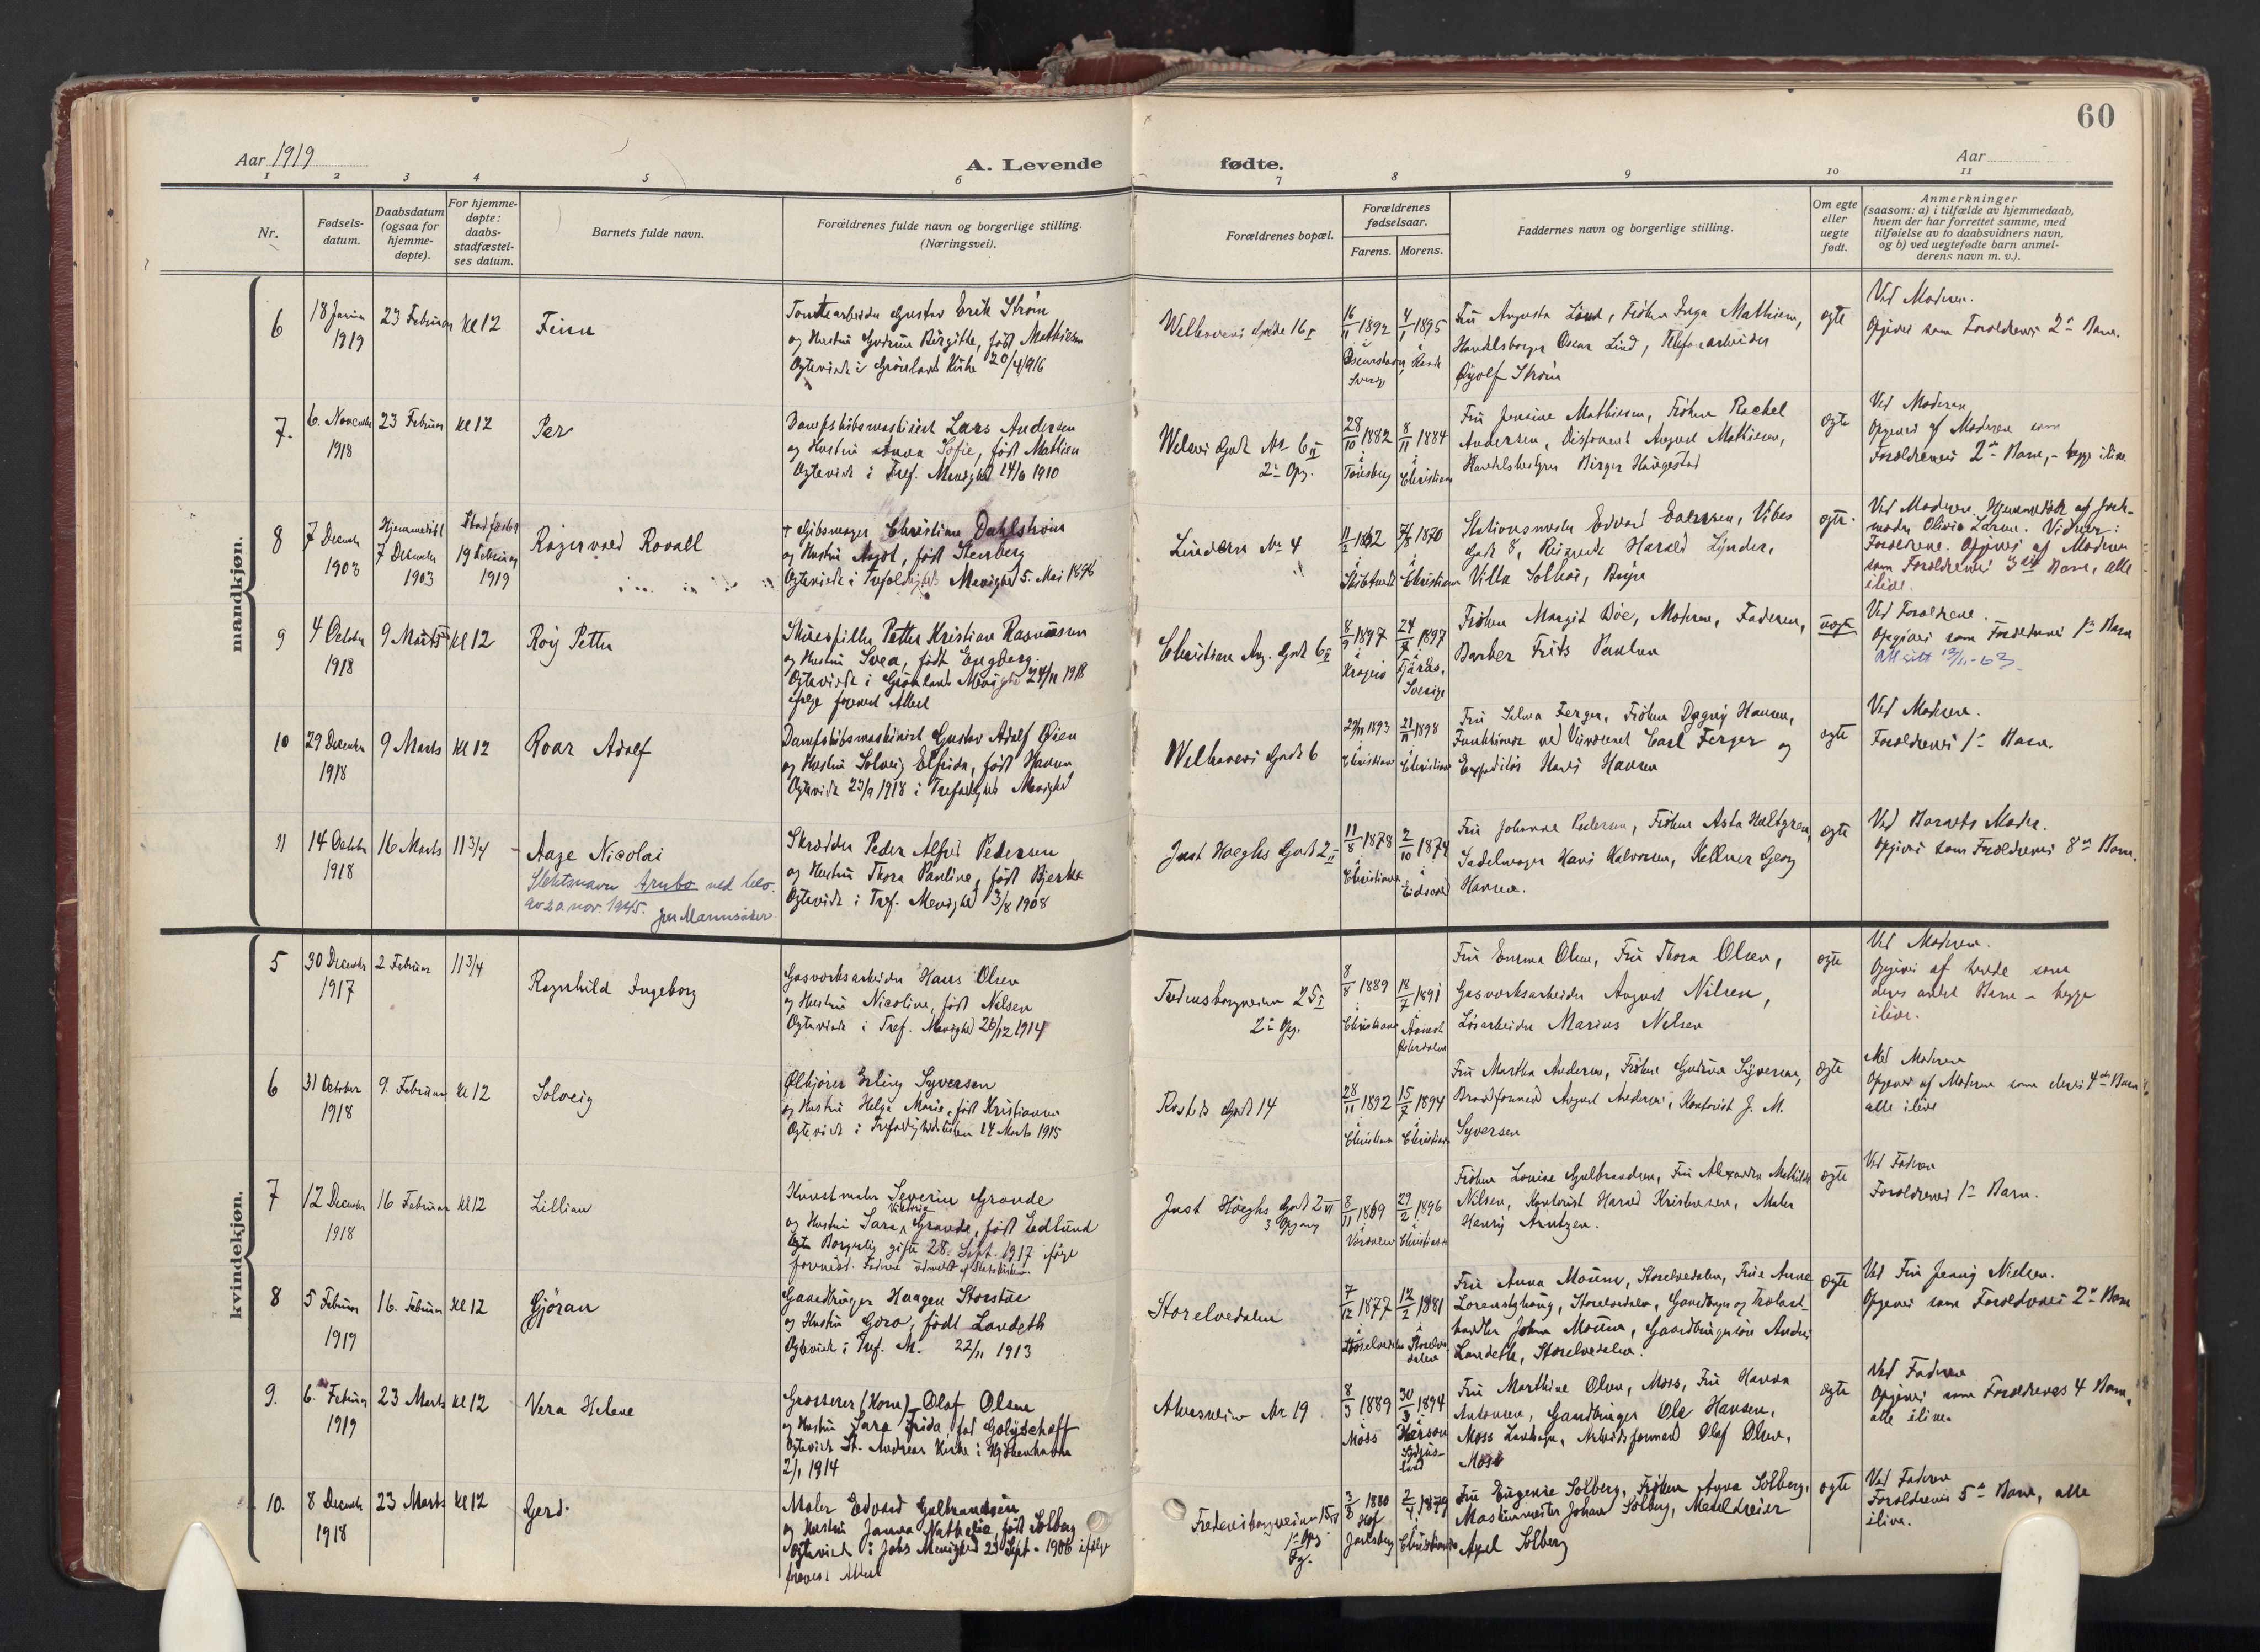 60
Aar 1919
A. Levende fødte.
Aar
1 2 3 4 5 6 7 8 9 10 11
Nr.
Fødsels-
datum.
Daabsdatum
(ogsaa for
hjemme-
døpte).
For hjemme-
døpte:
daabs-
stadfæstel-
ses datum.
Barnets fulde navn.
Forældrenes fulde navn og borgerlige stilling.
(Næringsvei).
Forældrenes bopæl.
Forældrenes
fødselsaar.
Farens. Morens.
Faddernes navn og borgerlige stilling.
Om egte
eller
uegte
født.
Anmerkninger
(saasom: a) i tilfælde av hjemmedaab,
hvem der har forrettet samme, med
tilføielse av to daabsvidners navn,
og b) ved uegtefødte barn anmel-
derens navn m. v.).
mandkjøn.
6
1919
23 Februar
Kl 12
Finn
Gustav Erik Strøm
og Hustru Gudrun Birgitte, født Mathisen
Ogteviede i Grønlands Kirke 20/4 1916
Welhavens Gade 16 I
16/11 1892
4/1 1895
Fru Augusta Lind, Frøken Inga Mathisen,
Oscar Lind,
Strøm
egte
Ved Moderen.
Opgives som Forældrenes 2det Barn.
7.
6. November
1918
23 Februar
Kl 12
Per
Dampskibsmaskinist Lars Andersen
og Hustru Anna Sofie, født Mathisen
Ogteviede i Tref. Menighed 14/6 1910
Gade Nr 6 II
2den Opg.
28/10 1882
i
Tønsberg
8/11 1884
i
Christiania
Fru Jensine Mathisen, Frøken Rachel
Andersen, Disponent August Mathisen,
Birger Haugestad
egte
Ved Moderen
Opgives af Moderen som
Forældrenes 2det Barn, - begge ilive
8
7 December
1903
Hjemmedøbt
7 December
1903
Stadfæstet
19 Februar
1919
Ragnvald Rovall
† Gibsmager Christian Dahlstrøm
og Hustru Aagot, født Stenberg
Ogteviede i Trefoldigheds Menighed 5. Mai 1896
Lindern Nr 4
i
Christiania
Stationsmester Edvard Evensen, Vibes
Gade 8, Harald Lynder,
Villa Solhøi, Bryn
egte.
Ved Moderen. Hjemmedøbt af Jord-
moder Olivia Larsen. Vidner:
Forældrene. Opgives af Moderen
som Forældrenes Barn, alle
ilive.
9
4 October
1918
9 Marts
Kl 12
Roy Petter
Skuespiller Petter Kristian Rasmussen
og Hustru Svea, født Engberg.
Ogteviede i Grønlands Menighed 24/11 1918
ifølge forevist Attest
Christian Aug. Gade 6 II
8/9 1897
i
Kragerø
24/7 1897
i
Sverige
Frøken Margit Bøe, Moderen, Faderen,
Barber Frits Paulsen
uegte
Ved Forældrene.
Opgives som Forældrenes 1ste Barn
10
29 December
1918
9 Marts
Kl 12
Roar Adolf
Dampskibsmaskinist Gustav Adolf Øien
og Hustru Solveig Elfrida, født Hansen
Ogteviede 23/9 1918 i Trefoldigheds Menighed
Welhavens Gade 6
1893
i
Christiania
21/11 1898
i
Christiania
Fru Selma Ferger, Frøken Dagny Hansen,
Funktionær ved Carl Ferger og
Expeditør Hans Hansen
egte
Ved Moderen.
Forældrenes 1ste Barn.
11
14 October
1918
16 Marts
11 3/4
Aage Nicolai
Slektsnavn Arnbo ved bev.
av 20. nov. 1945.
Skrædder Peder Alfred Pedersen
og Hustru Thora Pauline, født Bjerke
Ogteviede i Tref. Menighed 3/8 1908
Just Høeghs Gade 2 II
11/8 1878
i
Christiania
2/10 1874
i
Eidsvold
Fru Johanne Pedersen, Frøken Asta Hultgren,
Sadelmager Hans Halvorsen, Kellner Georg
Hansen.
egte
Ved Barnets Moder.
Opgives som Forældrenes 8de Barn.
kvindekjøn.
5
30 December
1917
2 Februar
11 3/4
Ragnhild Ingeborg
Gasverksarbeider Hans Olsen
og Hustru Nicoline, født Nilsen
Ogteviede i Tref. Menighed 26/12 1914
Fredensborgveien 25 I
2den Opg.
8/8 1889
i
Christiania
18/7 1891
i
Aamot
Østerdalen
Fru Emma Olsen, Fru Thora Olsen,
Gasverksarbeider August Nilsen,
Løsarbeider Marius Nilsen
egte
Ved Moderen.
Opgives af hende som
deres andet Barn - begge
ilive.
6
31 October
1918
9. Februar
Kl 12
Solveig
Ølkjører Erling Syversen
og Hustru Helga Marie, født Kristiansen
Ogteviede i Trefoldighedskirken 14 Marts 1915
Gade 14
28/11 1892
i
Christiania
15/7 1894
i
Christiania
Fru Martha Andersen, Frøken Gudrun Syversen,
August Andersen, Kontorist J. M.
Syversen
egte
Ved Moderen
Opgives af Moderen som deres 4de Barn
alle ilive
7
12 December
1918
16 Februar
Kl 12
Lillian
Kunstmaler Severin Grande
og Hustru Sara Viktoria Grande, født Edlund
Borgerlig gifte 28. Sept. 1917 ifølge
forevist. Faderen udmeldt af Statskirken.
Just Høeghs Gade 2 VI
3 Opgang
8/11 1869
i
Værdalen
29/2 1896
i
Christiania
Frøken Louise Gulbrandsen, Fru Alexandra Mathilde
Nilsen, Kontorist Harald Kristensen, Maler
Henry Arntzen.
egte
Ved Faderen
Forældrenes 1ste Barn.
8
5 Februar
1919
16. Februar
Kl 12
Gjöran
Gaardbruger Haagen Storstue
og Hustru Goro, født Landeth
Ogteviede i Tref. M. 22/11 1913
Storelvedalen
7/12 1877
i
Storelvedalen
12/2 1881
i
Storelve-
dalen
Fru Anna Moum, Storelvedalen, Anne
Storelvedalen, Gaardbruger og Trælast-
handler Johan Moum, Gaardbruger Anders
Landeth, Storelvedalen.
egte
Ved Fru Jenny Nielsen.
Opgives som Forældrenes 2det Barn
9.
6. Februar
1919
23 Marts
Kl 12
Vera Helene
Grosserer (Korn) Olaf Olsen
og Hustru Sara Frida, født Golyschoff
Ogteviede St. Andreas Kirke i Kjøbenhavn
2/1 1914
Akersveien Nr. 19
8/3 1889
i
Moss
30/3 1894
i
Fru Marthine Olsen, Moss, Fru Hanna
Antonsen, Gaardbruger Ole Hansen,
Moss Landsogn, Arbeidsformand Olaf Olsen,
Moss
egte
Ved Faderen
Opgives som Forældrenes 4 Barn,
alle ilive.
10.
8 December
1918
23 Marts
Kl 12
Gerd.
Maler Edvard Gulbrandsen
og Hustru Janna Nathalie, født Solberg
Ogteviede i Johs Menighed 23 Sept. 1906 ifølge
forevist Attest
Fredensborgveien 15
1ste Opg
3/8 1880
Hof
Jarlsberg
2/4 1879
i
Christiania
Fru Eugenie Solberg, Frøken Anna Solberg,
Maskinmester Johan Solberg, Metaldreier
Axel Solberg
egte
Ved Faderen
Forældrenes 5te Barn, alle
ilive.